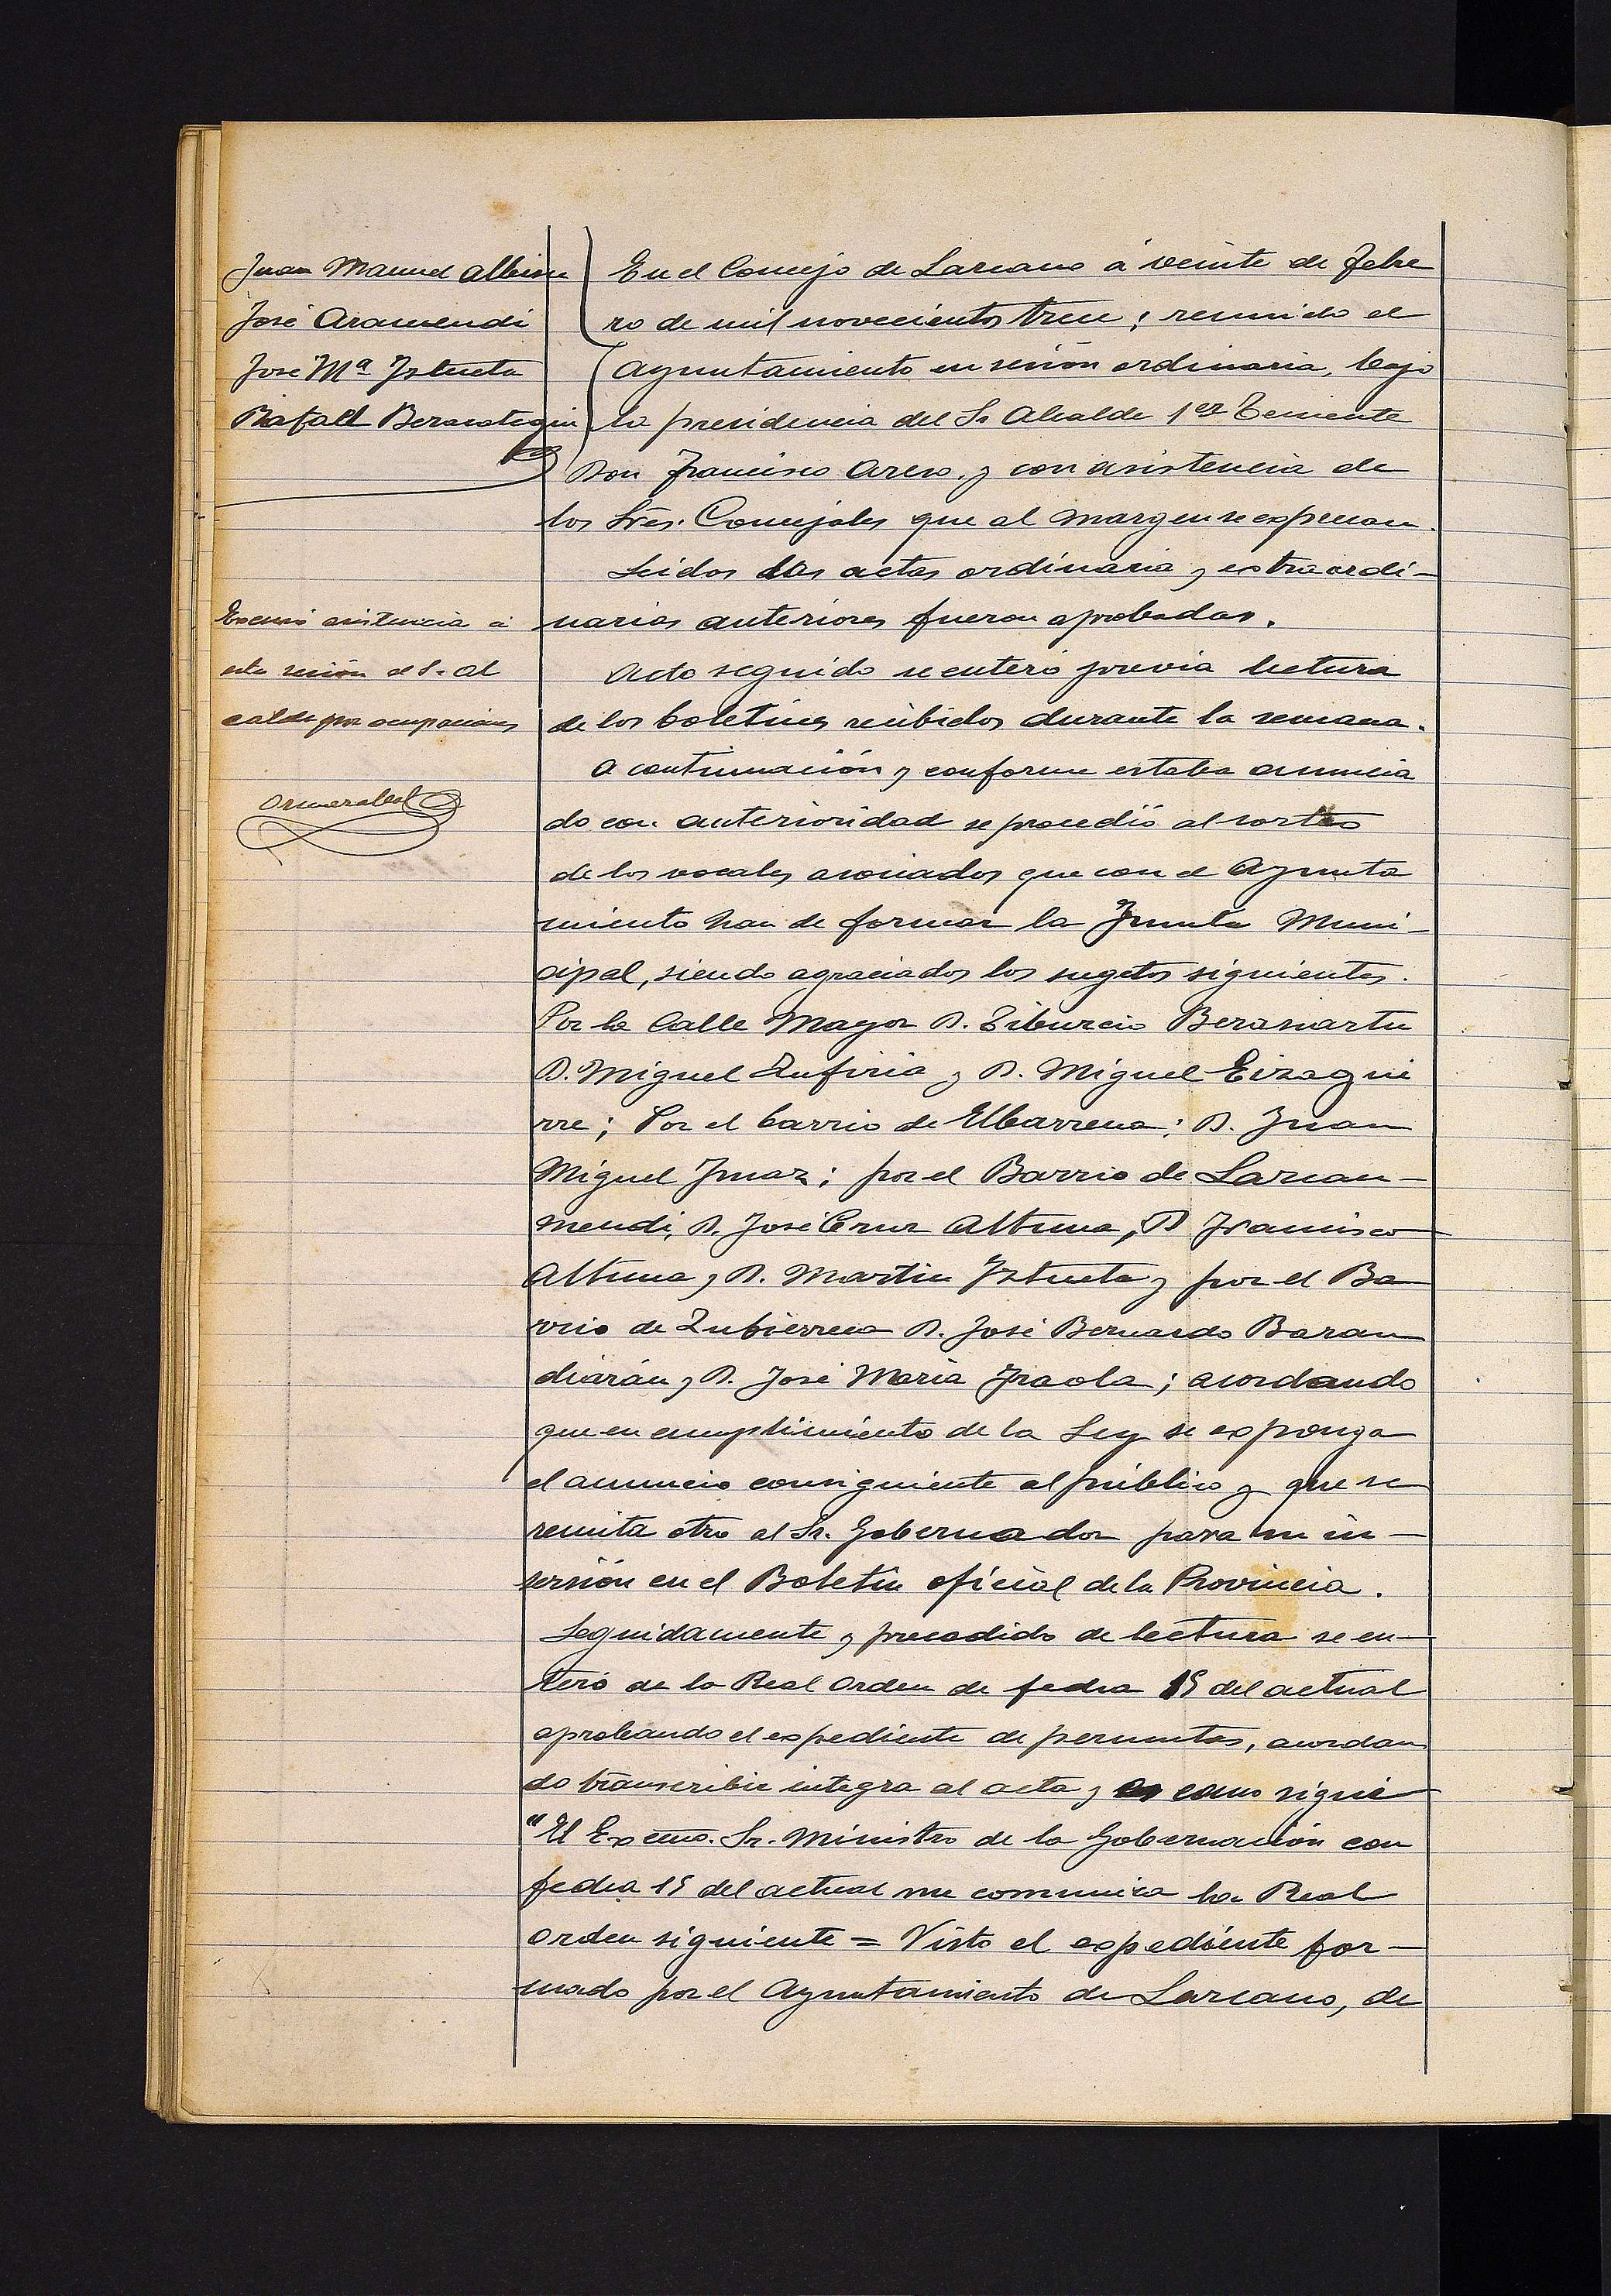 Juan Manuel Albisu
José Aramendi
José Mª Iztueta
Rafael Berasategui
En el Concejo de Lazcano á veinte de Febre
ro de mil novecientos trece; reunido el
Ayuntamiento en sesión ordinaria, bajo
la presidencia del Sr Alcalde 1er Teniente
Don Francisco Areso, y con asistencia de
los Sres. Concejales que al margen se expresan.
Leidos las actas ordinaria y extraordi-
narias anteriores fueron aprobadas.
Excusó asistencia á
esta sesión el Sr. Al
calde por ocupaciones
Acto seguido se enteró previa lectura
de los boletines recibidos durante la semana.
A continuación y conforme estaba anuncia
do con anterioridad se procedió al sorteo
de los vocales asociados que con el Ayunta
miento han de formar la Junta Muni-
cipal, siendo agraciados los sugetos siguientes.
Por la Calle Mayor D. Tiburcio Berasiartu
D. Miguel Zufiria y D. Miguel Eizagui
rre; Por el barrio de Elbarrena: D. Juan
Miguel Imaz; por el Barrio de Lazcau-
mendi, D. José Cruz Altuna, D Francisco
Altuna y D. Martin Iztueta y por el Ba
rrio de Zubierreca D. José Bernardo Baran
diarán y D. José Maria Iraola; acordando
que en cumplimiento de la Ley se exponga
el anuncio consiguiente al público y que se
remita otro al Sr. Gobernador para su in-
serción en el Boletin oficial de la Provincia.
Seguidamente y precedido de lectura se en-
teró de la Real Orden de fecha 15 del actual
aprobando el expediente de permutas, acordan
do transcribir integra al acta y es como sigue
"El Excmo. Sr. Ministro de la Gobernación con
fecha 15 del actual me comunica la Real
Orden siguiente = Visto el expediente for-
mado por el Ayuntamiento de Lazcano, de